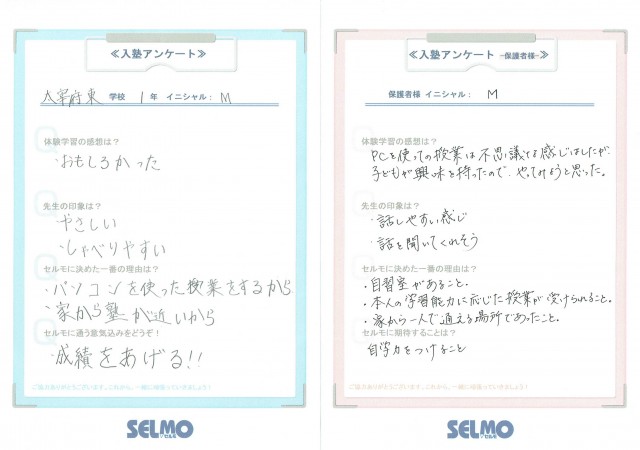 ≪入塾アンケート≫
太宰府東 学校 1 年 イニシャル： M
体験学習の感想は？
・おもしろかった
先生の印象は？
・やさしい
・しゃべりやすい
セルモに決めた一番の理由は？
・パソコンを使った授業をするから
・家から塾が近いから
セルモに通う意気込みをどうぞ！
・成績をあげる!!
ご協力ありがとうございます。これから、一緒に頑張っていきましょう！
SELMO
セルモ
≪入塾アンケート -保護者様-≫
保護者様 イニシャル： M
体験学習の感想は？
PCを使っての授業は不思議な感じはしましたが、
子どもが興味を持ったので、やってみようと思った。
先生の印象は？
・話しやすい感じ
・話を聞いてくれそう
セルモに決めた一番の理由は？
・自習室があること。
・本人の学習能力に応じた授業が受けられること。
・家から一人で通える場所であったこと。
セルモに期待することは？
自学力をつけること
ご協力ありがとうございます。これから、一緒に頑張っていきましょう！
SELMO
セルモ